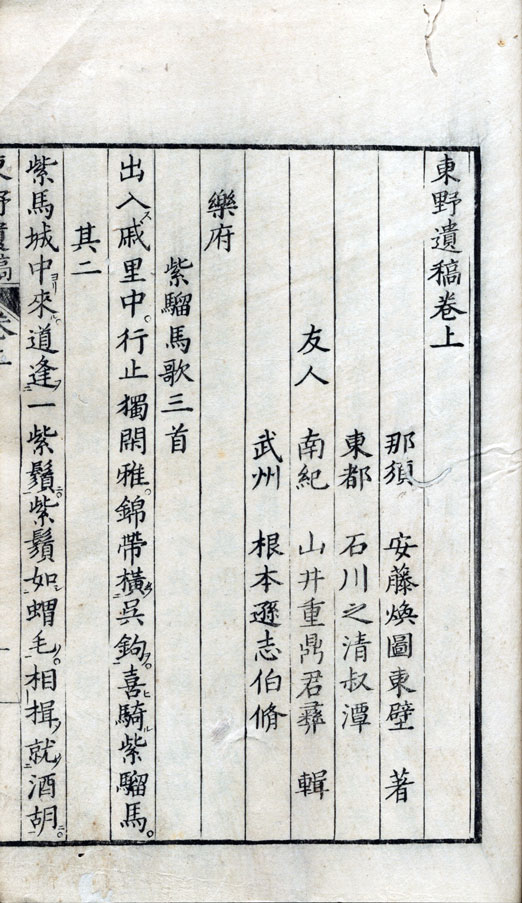 東野遺稿卷上
那須 安藤煥圖東壁 著
東都 石川之清叔潭
友人 南紀 山井重鼎君彝 輯
武州 根本遜志伯脩
樂府
紫騮馬歌三首
出入ス戚里中。行止獨閑雅。錦帶橫ヘ吳鉤ヲ。喜ヒ騎ル紫騮馬。
其二
紫馬城中ヨリ來ル。道逢フ一紫鬚ニ。紫鬚如シ蝟毛ノ。相揖シテ就ク酒胡ニ。
東野遺稿 卷上